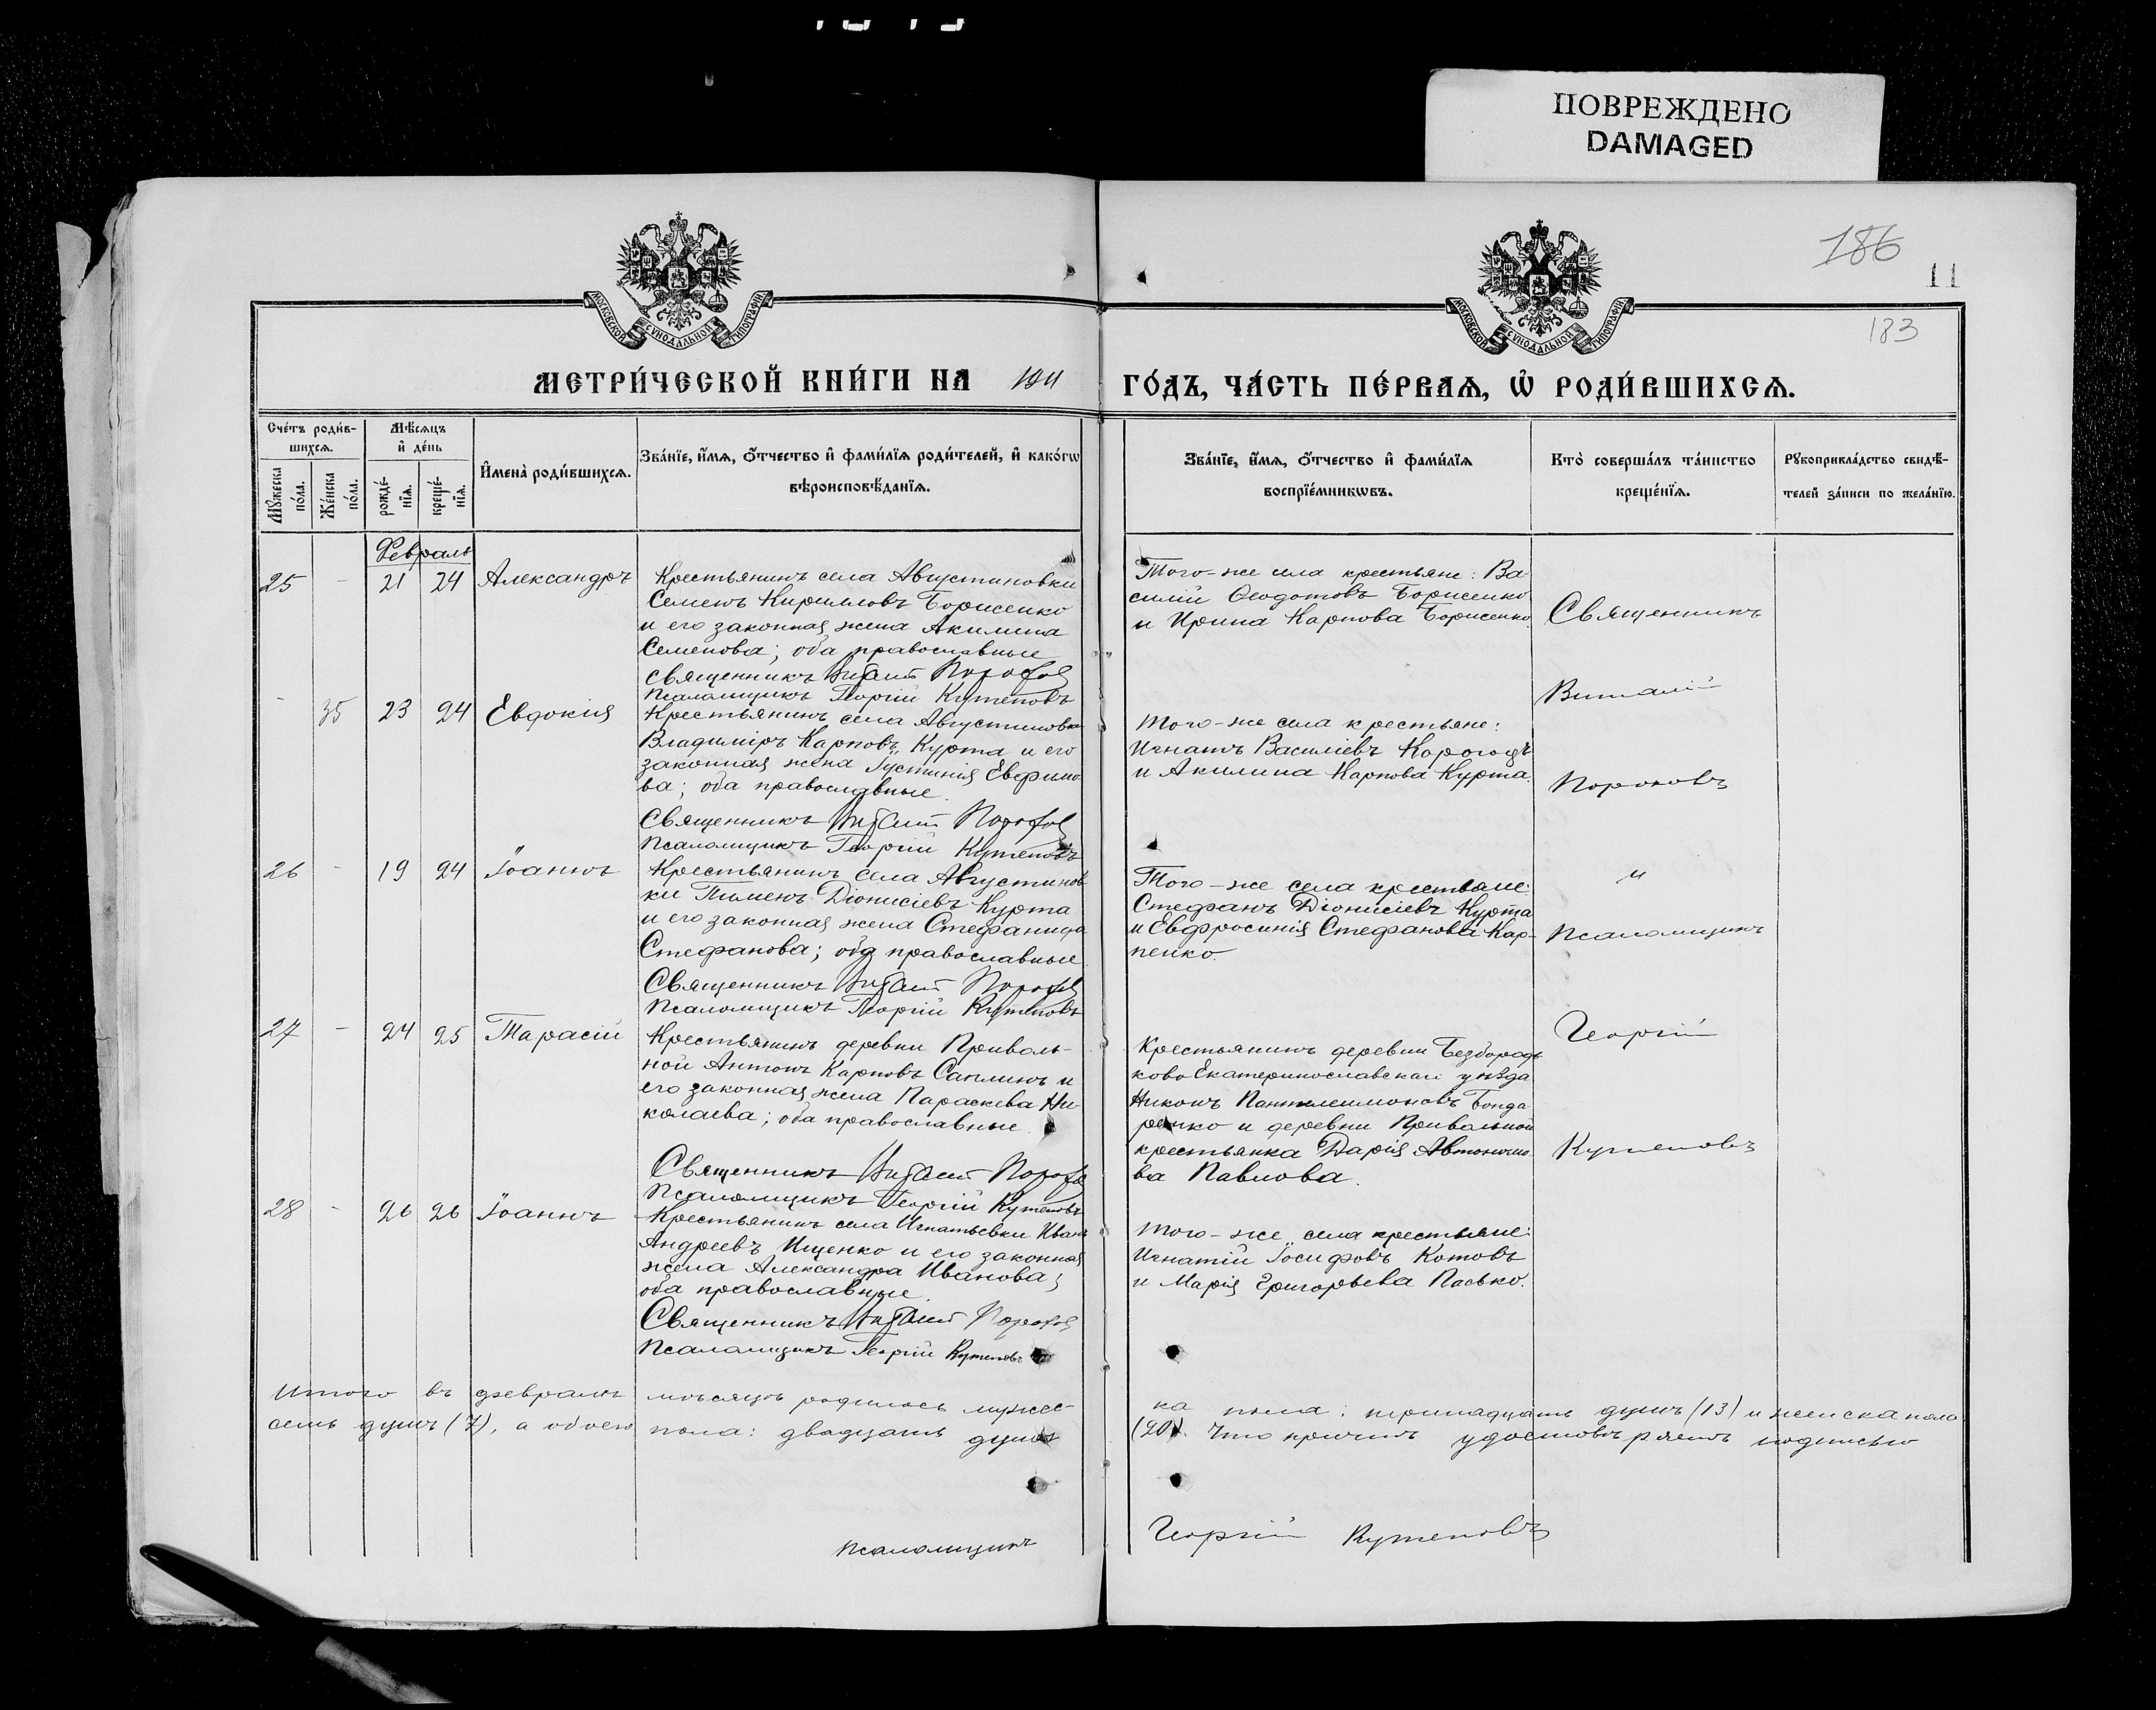 ПОВРЕЖДЕНО
DAMAGED
186
11
183
МОСКОВСКОЙ СѴНОДАЛЬНОЙ ТИПОГРАФІИ
МОСКОВСКОЙ СѴНОДАЛЬНОЙ ТИПОГРАФІИ
МЕТРИ́ЧЕСКОЙ КНИ́ГИ НА 1911 ГО́ДЪ, ЧА́СТЬ ПЕ́РВАЯ, Ѡ҆ РОДИ́ВШИХСЯ.
Сче́тъ роди́в-
шихся.
Мꙋ́жеска по́ла.
Же́нска по́ла.
Мѣ́сяцъ
и҆ де́нь
рожде́-
нїя.
креще́-
нїя.
И҆мена̀ роди́вшихся.
Зва́нїе, и҆́мя, о҆́тчество и҆ фами́лїя роди́телей, и҆ како́гѡ
вѣроисповѣ́данїя.
Зва́нїе, и҆́мя, о҆́тчество и҆ фами́лїя
воспрїе́мникѡвъ.
Кто̀ соверша́лъ та́инство
креще́нїя.
Рꙋкоприкла́дство свидѣ́-
телей за́писи по жела́нїю.
Февраль
25 - 21 24 Александръ
Крестьянинъ села Августиновки
Семенъ Кирилловъ Борисенко
и его законная жена Акилина
Семенова; оба православные
Священникъ Виталій Пороховъ
Псаломщикъ Георгій Кутеповъ
Того-же села крестьяне: Ва
силій Ѳеодотовъ Борисенко
и Ирина Карпова Борисенко.
- 35 23 24 Евдокія
Крестьянинъ села Августиновки
Владиміръ Карповъ Курта и его
законная жена Іустинія Евфимо
ва; оба православные.
Священникъ Виталій Пороховъ
Псаломщикъ Георгій Кутеповъ
Того-же села крестьяне:
Игнатъ Василіевъ Корогодъ
и Акилина Карпова Курта.
26 - 19 24 Іоаннъ
Крестьянинъ села Августинов
ки Пименъ Діонисіевъ Курта
и его законная жена Стефанида
Стефанова; оба православные.
Священникъ Виталій Пороховъ
Псаломщикъ Георгій Кутеповъ
Того-же села крестьяне:
Стефанъ Діонисіевъ Курта
и Евфросинія Стефанова Кар-
пенко.
27 - 24 25 Тарасій
Крестьянинъ деревни Приволь-
ной Антонъ Карповъ Саплинъ и
его законная жена Параскева Ни-
колаева; оба православные.
Священникъ Виталій Пороховъ
Псаломщикъ Георгій Кутеповъ
Крестьянинъ деревни Безбородь
ково Екатеринославскаго уѣзда
Никонъ Пантелеимоновъ Бонда
ренко и деревни Привольной
крестьянка Дарія Автономо
ва Павлова.
28 - 26 26 Іоаннъ
Крестьянинъ села Игнатьевки Иванъ
Андреевъ Ищенко и его законная
жена Александра Иванова;
оба православные.
Священникъ Виталій Пороховъ
Псаломщикъ Георгій Кутеповъ
Того-же села крестьяне:
Игнатій Іосифовъ Котовъ
и Марія Григорьева Пасько.
Священникъ
Виталій
Пороховъ
и
Псаломщикъ
Георгій
Кутеповъ
Итого въ февралѣ мѣсяцѣ родилось мужес-ка пола: тринадцать душъ (13) и женска пола
семь душъ (7), а обоего пола: двадцать душъ (20). Что причтъ удостовѣряетъ подписью
Псаломщикъ Георгій Кутеповъ